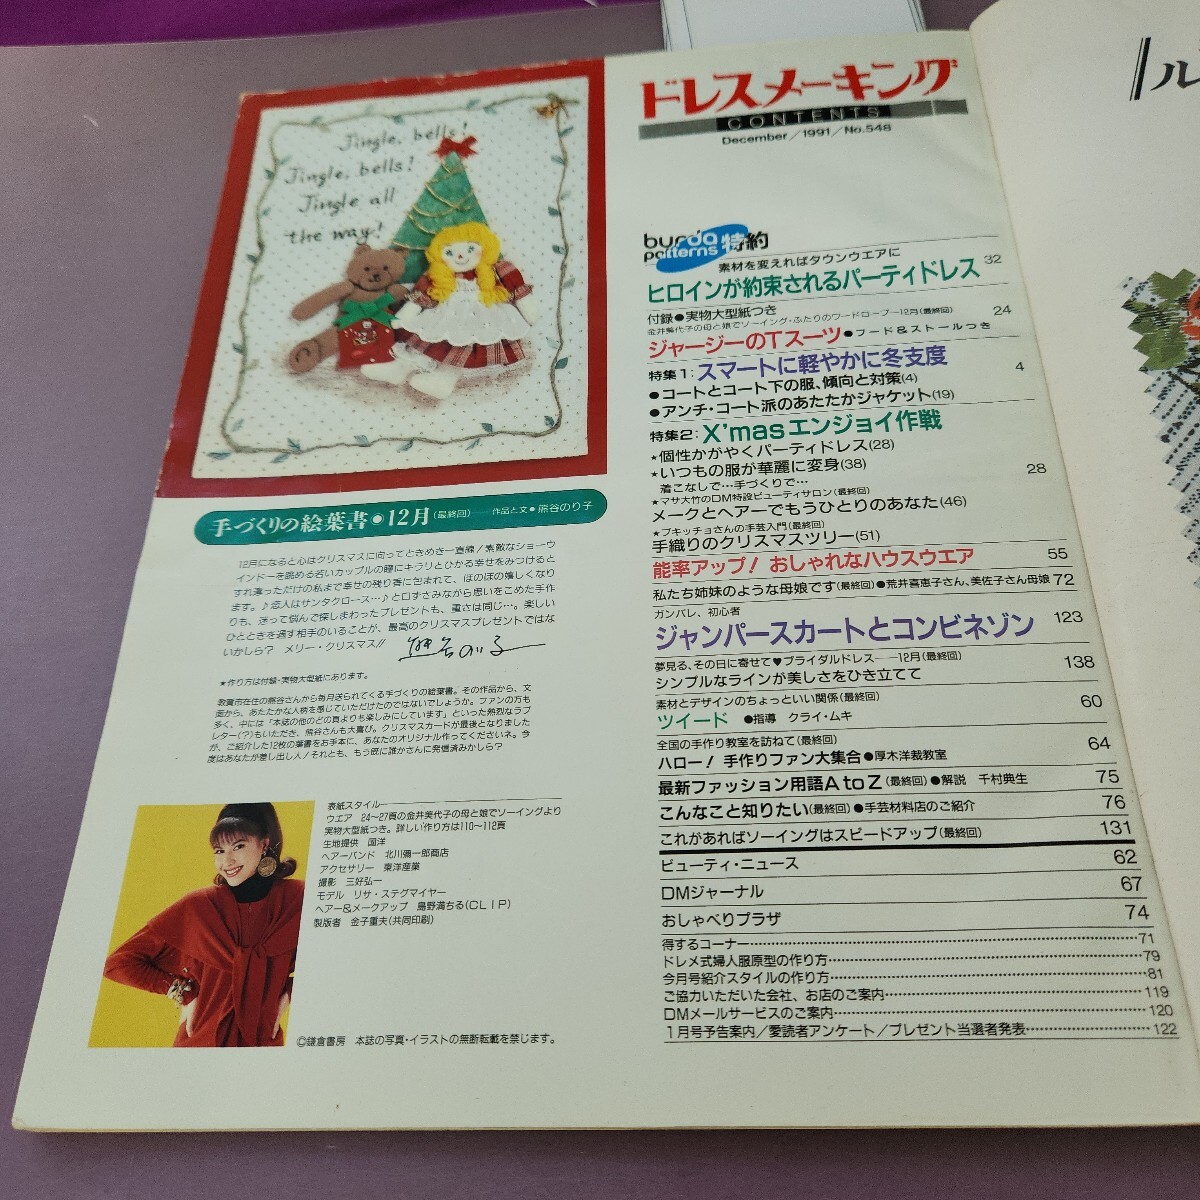 Jingle, bells!
Jingle, bells!
Jingle all
the way!
手づくりの絵葉書●12月(最終回)——作品と文●熊谷のり子
12月になると心はクリスマスに向ってときめき一直線/素敵なショーウ
インドーを眺める若いカップルの瞳にキラリとひかる幸せをみつけると
すれ違っただけの私まで幸せの残り香に包まれて、ほのぼの嬉しくなり
ます。♪恋人はサンタクロース…♪と口ずさみながら思いをこめた手作
りも、迷って悩んで探しまわったプレゼントも、重さは同じ…。楽しい
ひとときを過す相手のいることが、最高のクリスマスプレゼントではな
いかしら? メリー・クリスマス//
熊谷のり子
★作り方は付録・実物大型紙にあります。
敦賀市在住の熊谷さんから毎月送られてくる手づくりの絵葉書。その作品から、文
面から、あたたかな人柄を感じていただけたのではないでしょうか。ファンの方も
多く、中には「本誌の他のどの頁よりも楽しみにしています」といった熱烈なラブ
レター(?)もいただき、熊谷さんも大喜び。クリスマスカードが最後となりました
が、ご紹介した12枚の葉書をお手本に、あなたのオリジナル作ってくださいネ。今
度はあなたが差し出し人/それとも、もう既に誰かさんに発信済みかしら?
表紙スタイル
ウエア 24〜27頁の金井美代子の母と娘でソーイングより
実物大型紙つき。詳しい作り方は110〜112頁
生地提供 国洋
ヘアーバンド 北川彌一郎商店
アクセサリー 東洋産業
撮影 三好弘一
モデル リサ・ステグマイヤー
ヘアー&メークアップ 島野満ちる(CLIP)
製版者 金子重夫(共同印刷)
©鎌倉書房 本誌の写真・イラストの無断転載を禁じます。
ドレスメーキング
CONTENTS
December/1991/No.548
burda patterns 特約
素材を変えればタウンウエアに
ヒロインが約束されるパーティドレス 32
付録●実物大型紙つき
金井美代子の母と娘でソーイング・ふたりのワードローブ—12月(最終回) 24
ジャージーのTスーツ●フード&ストールつき
特集1:スマートに軽やかに冬支度 4
●コートとコート下の服、傾向と対策(4)
●アンチ・コート派のあたたかジャケット(19)
特集2:X'masエンジョイ作戦
★個性かがやくパーティドレス(28)
★いつもの服が華麗に変身(38) 28
着こなしで…手づくりで…
★マサ大竹のDM特設ビューティサロン(最終回)
メークとヘアーでもうひとりのあなた(46)
★プキッチョさんの手芸入門(最終回)
手織りのクリスマスツリー(51)
能率アップ!おしゃれなハウスウエア 55
私たち姉妹のような母娘です(最終回)●荒井喜恵子さん、美佐子さん母娘 72
ガンバレ、初心者
ジャンパースカートとコンビネゾン 123
夢見る、その日に寄せて♥ブライダルドレス——12月(最終回)
シンプルなラインが美しさをひき立てて 138
素材とデザインのちょっといい関係(最終回)
ツイード ●指導 クライ・ムキ 60
全国の手作り教室を訪ねて(最終回)
ハロー!手作りファン大集合●厚木洋裁教室 64
最新ファッション用語AtoZ(最終回)●解説 千村典生 75
こんなこと知りたい(最終回)●手芸材料店のご紹介 76
これがあればソーイングはスピードアップ(最終回) 131
ビューティ・ニュース 62
DMジャーナル 67
おしゃべりプラザ 74
得するコーナー……71
ドレメ式婦人服原型の作り方……79
今月号紹介スタイルの作り方……81
ご協力いただいた会社、お店のご案内……119
DMメールサービスのご案内……120
1月号予告案内/愛読者アンケート/プレゼント当選者発表……122
ル